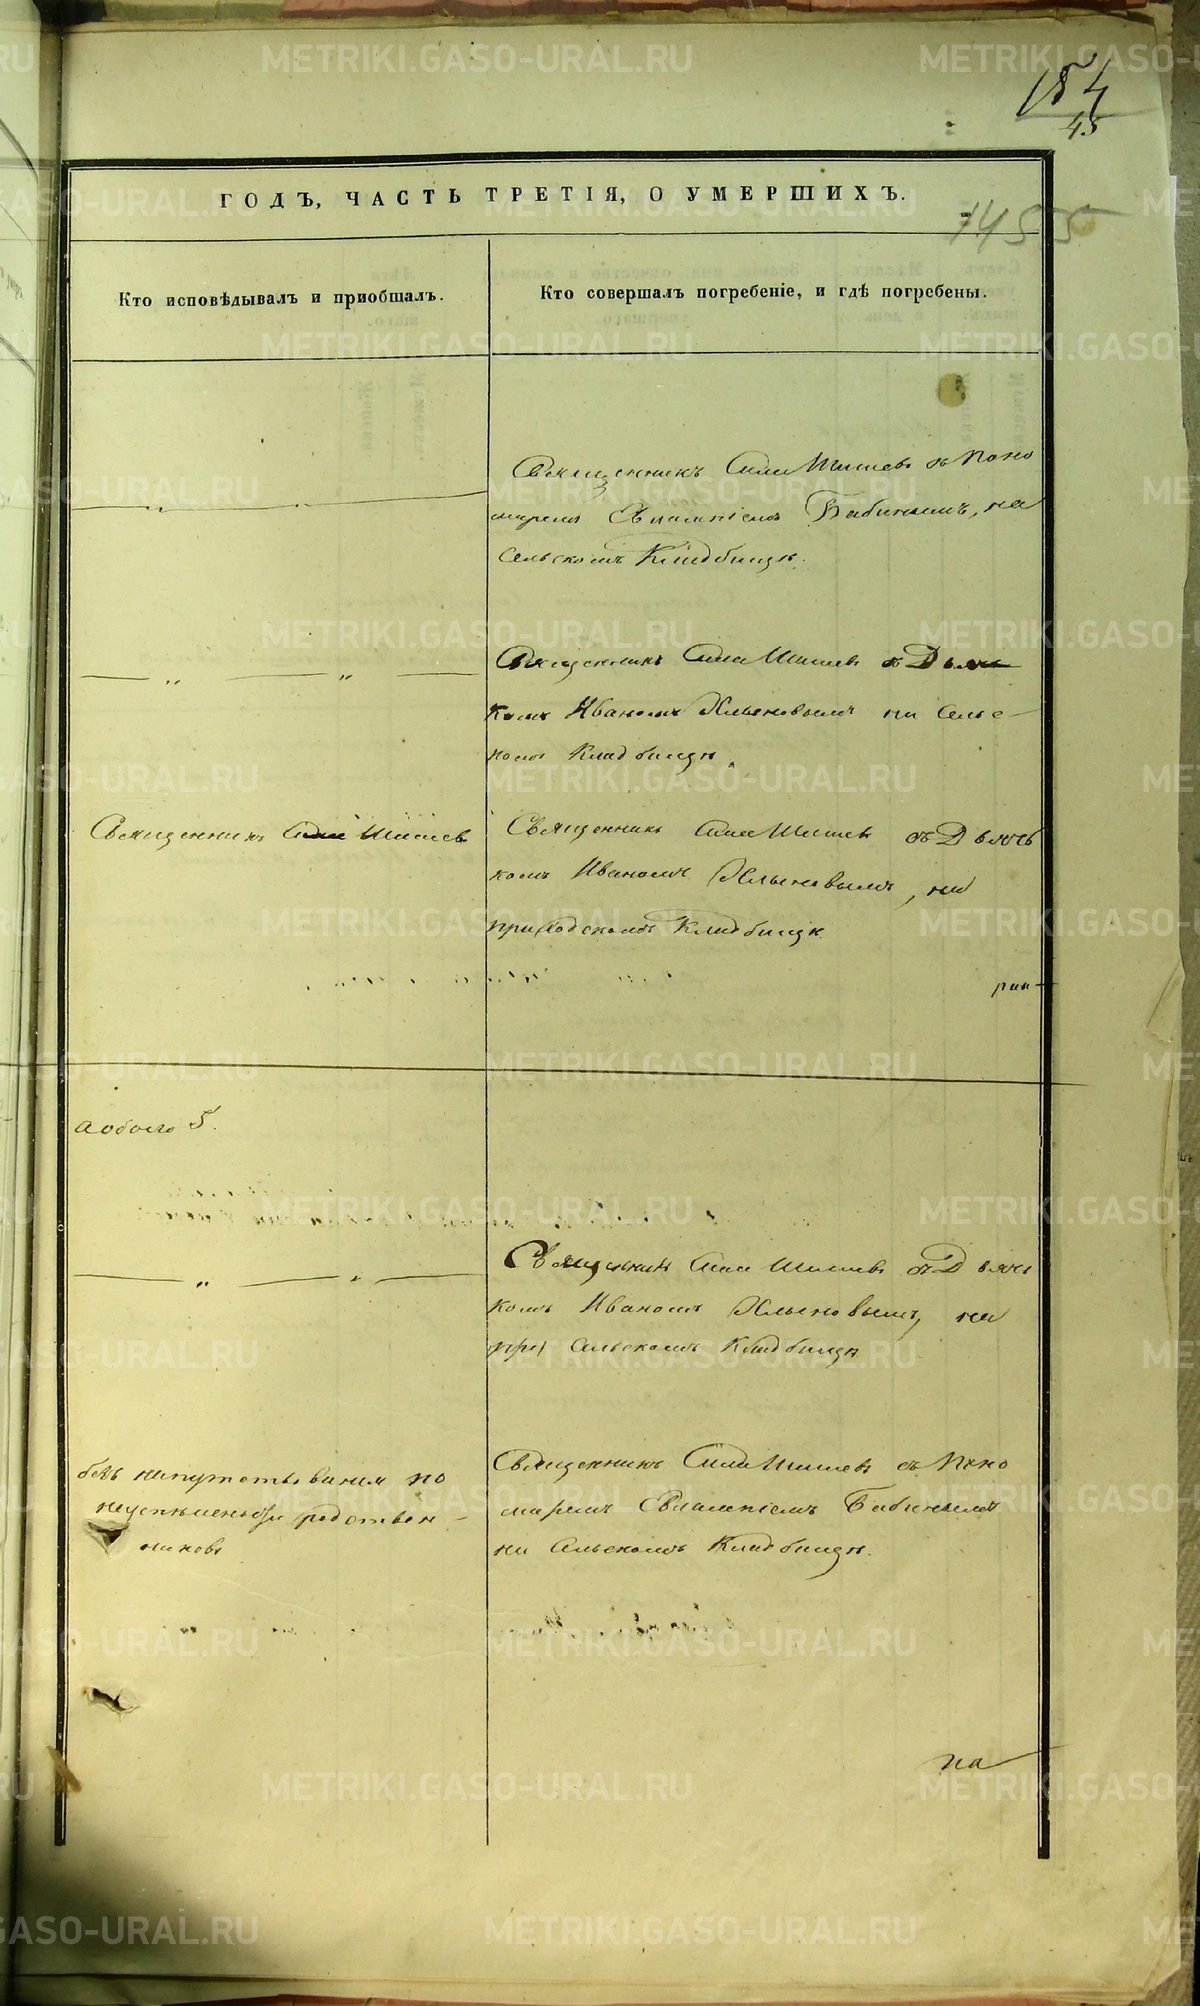 154
45
ГОДЪ, ЧАСТЬ ТРЕТІЯ, О УМЕРШИХЪ.
1455
Кто исповѣдывалъ и пріобщалъ.
Кто совершалъ погребеніе, и гдѣ погребены.
Священникъ Сила Шишевъ съ Поно
маремъ Евлампіемъ Бабинымъ, на
Сельскомъ Кладбищѣ.
Священникъ Сила Шишевъ съ Дьяч
комъ Иваномъ Хлыновымъ на Сельс-
комъ Кладбищѣ.
Священникъ Сила Шишевъ
Священникъ Сила Шишевъ съ Дьячь
комъ Иваномъ Хлыновымъ, на
приходскомъ Кладбищѣ
а обоего 5.
Священникъ Сила Шишевъ съ Дьячь
комъ Иваномъ Хлыновымъ, на
Сельскомъ Кладбищѣ
безъ напутствованія по
неуспѣшености родствен-
никовъ
Священникъ Сила Шишевъ съ Поно
маремъ Евлампіемъ Бабинымъ
на Сельскомъ Кладбищѣ.
на
METRIKI.GASO-URAL.RU